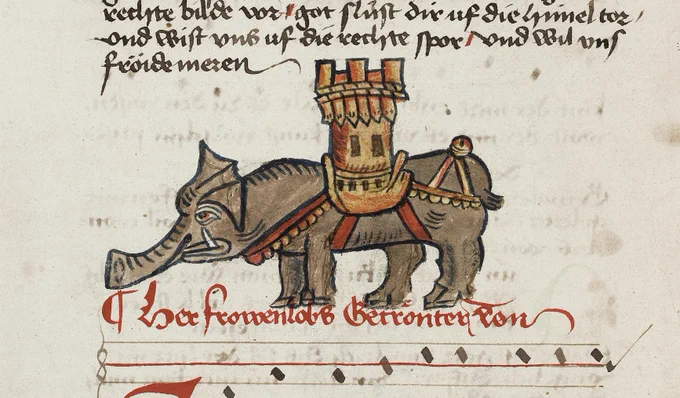 rechte bilde vor / got slust dir uf die himel tor /
vnd wist vns uf die rechte spor / vnd wil vns
fröide meren
¶ Her frowenlobs Getrönter don